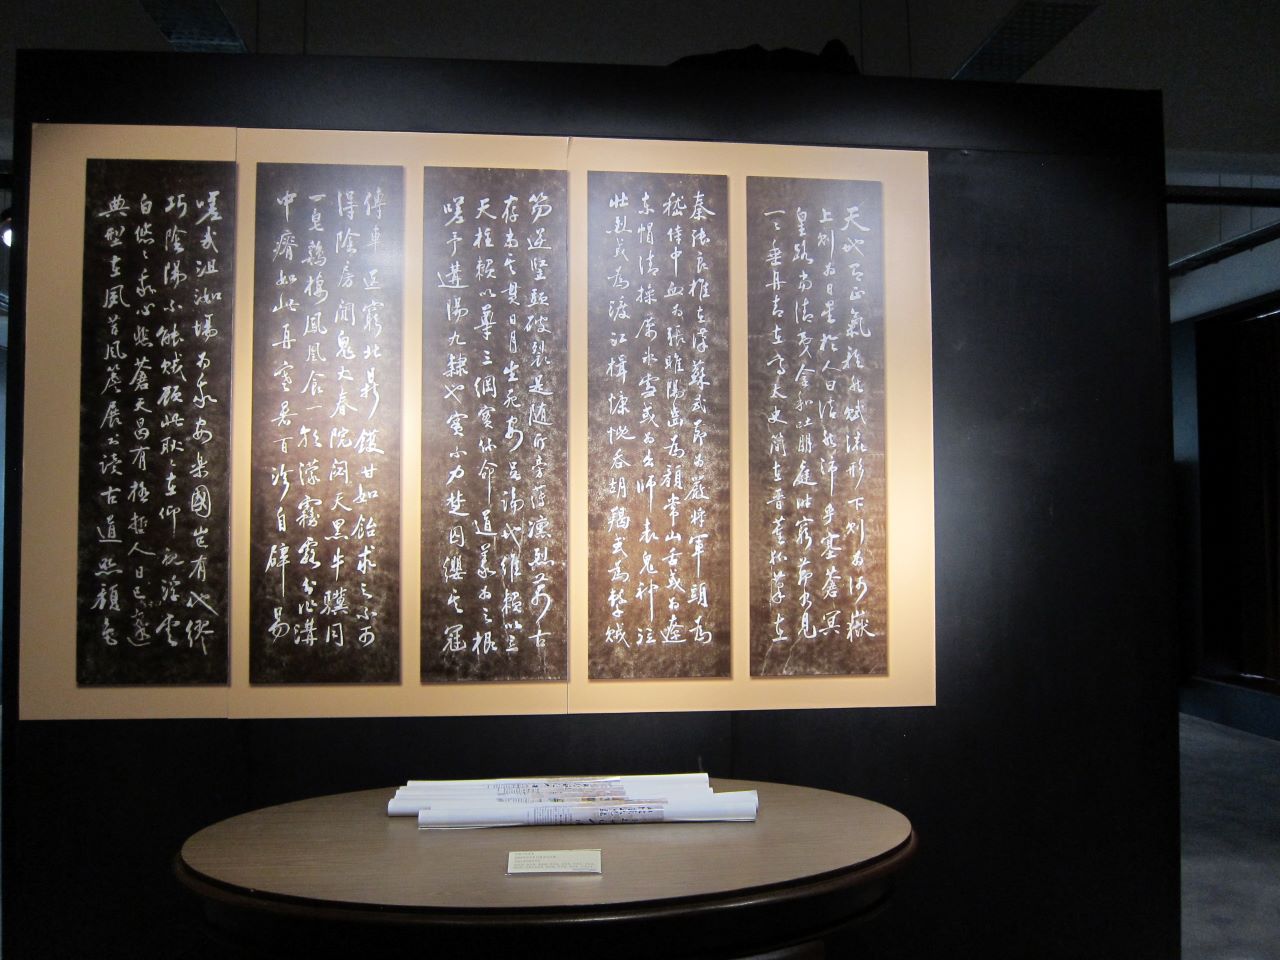 天地有正氣雜然賦流形下則為河嶽
上則為日星於人曰浩然沛乎塞蒼冥
皇路當清夷含和吐明庭時窮節乃見
一々垂丹青在齊太史簡在晉董狐筆在
秦張良椎在漢蘇武節為嚴將軍頭為
嵇侍中血為張睢陽齒為顏常山舌或為遼
東帽清操厲冰雪或為出師表鬼神泣
壯烈或為渡江楫慷慨吞胡羯或為擊賊
笏逆豎頭破裂是所旁薄凜烈萬古
存當其貫日月生死安足論地維賴以立
天柱賴以尊三綱實係命道義為之根
嗟予遘陽九隸也實不力楚囚纓其冠
傳車送窮北鼎鑊甘如飴求之不可
得陰房闃鬼火春院閟天黑牛驥同
一皂鷄棲鳳凰食一朝濛霧露分作溝
中瘠如此再寒暑百沴自辟易
嗟哉沮洳場為我安樂國豈有他繆
巧陰陽不能賊顧此耿々在仰視浮雲
白悠々我心悲蒼天曷有極哲人日已遠
典型在夙昔風簷展書讀古道照顏色